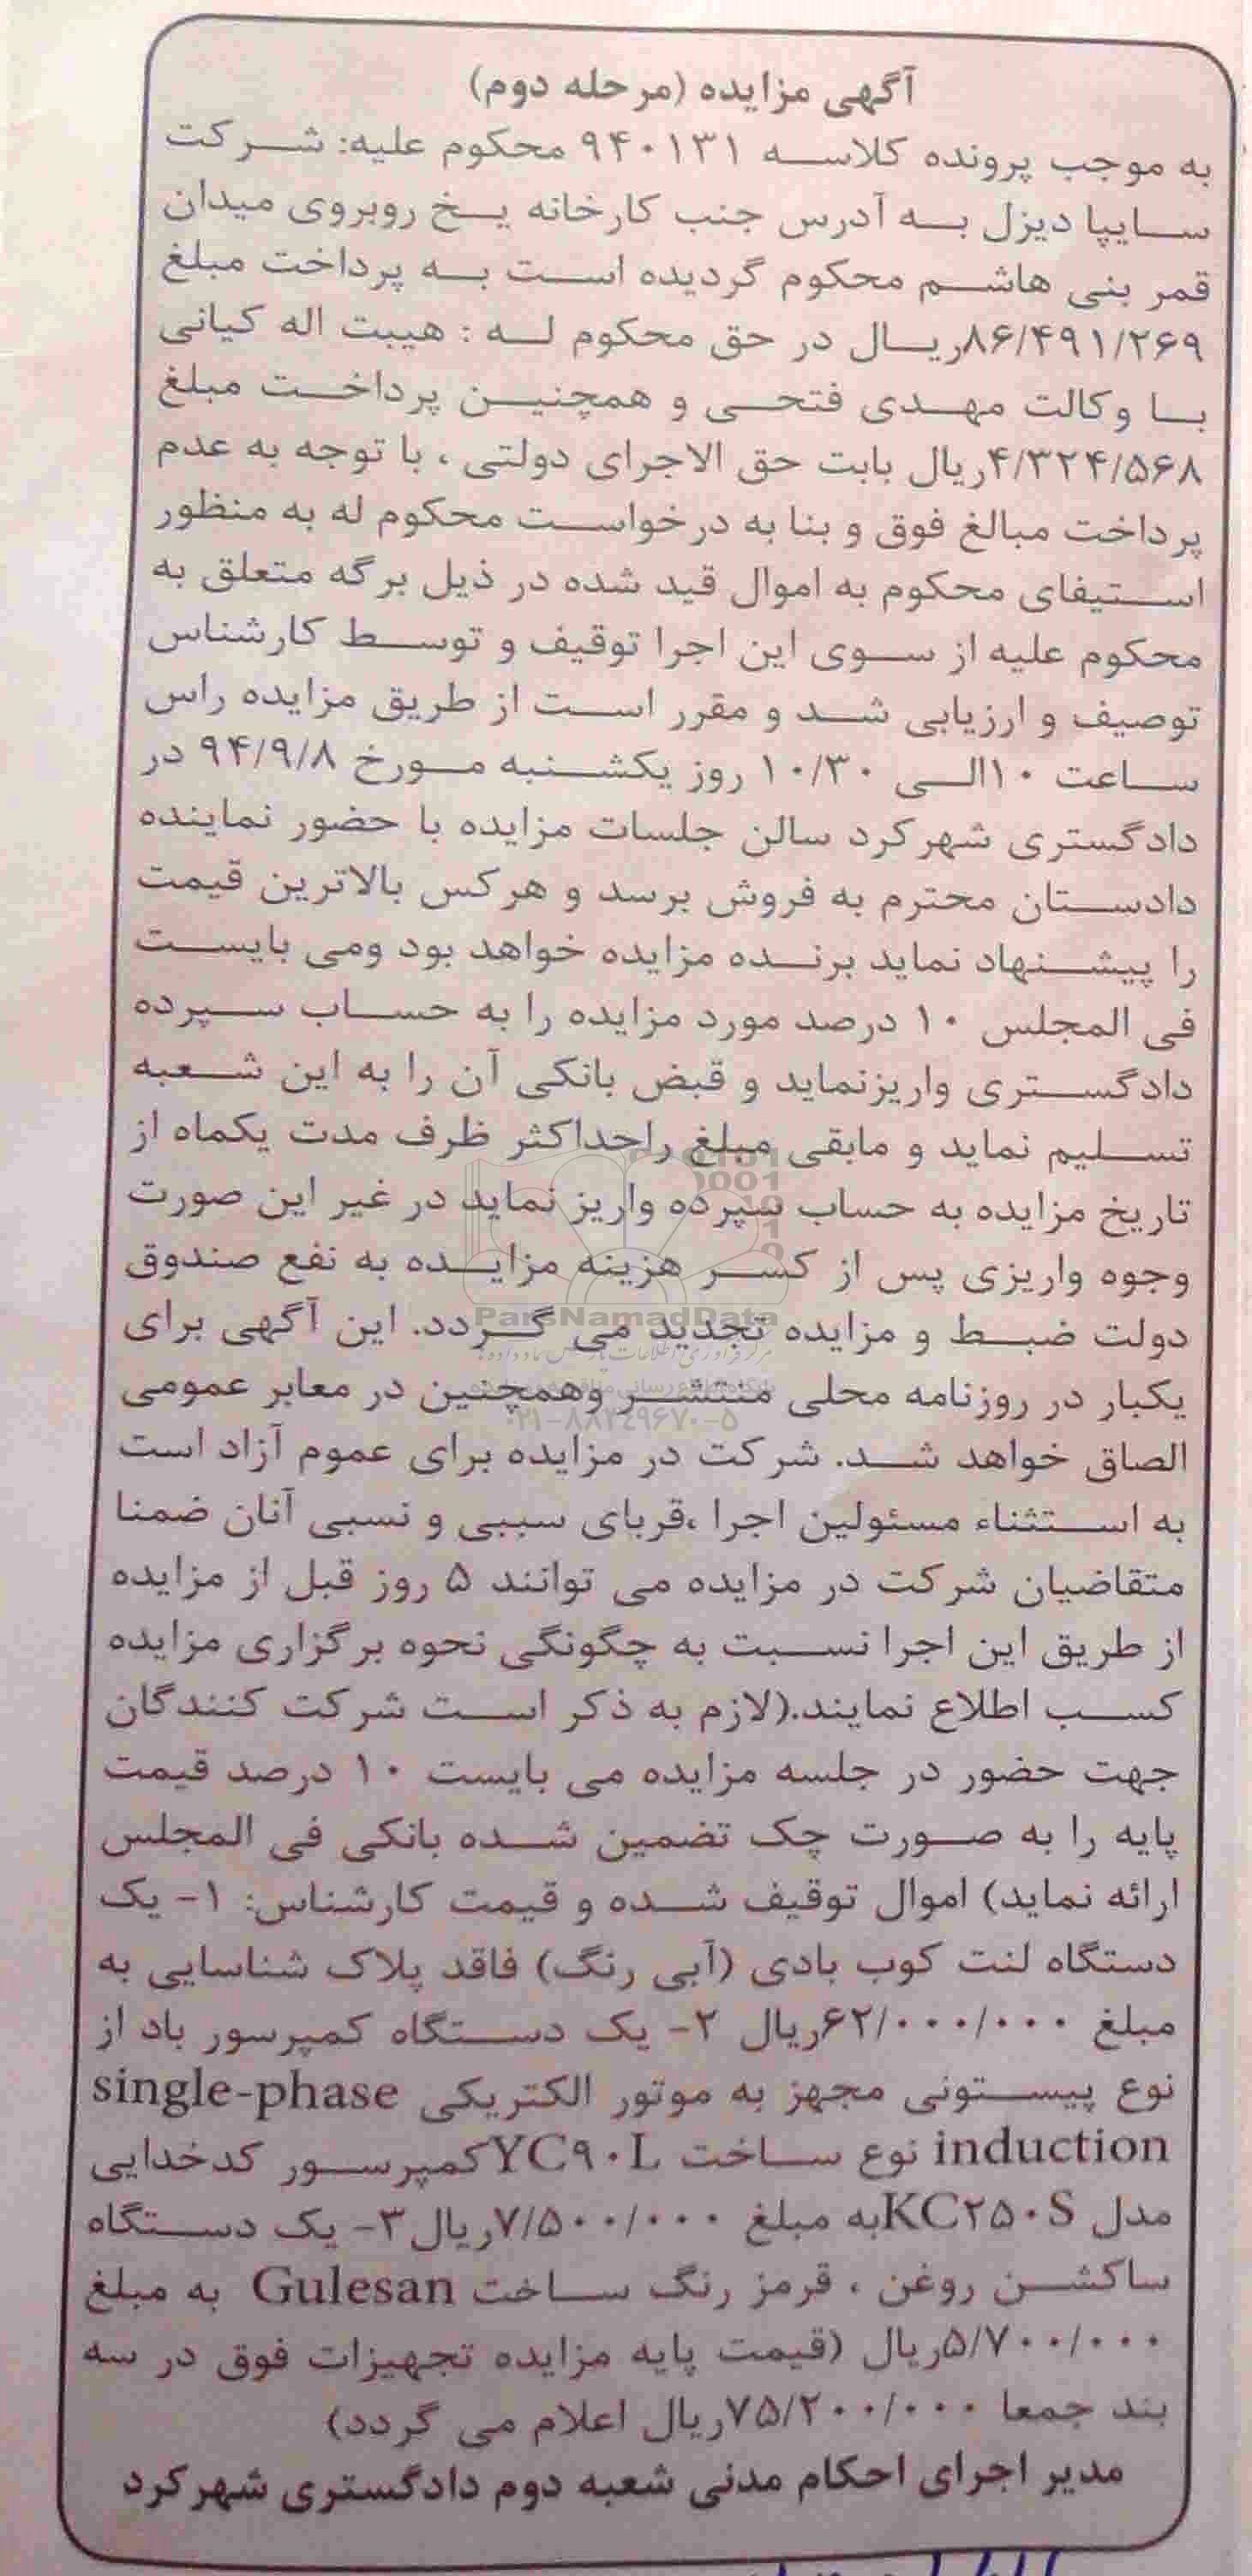 آگهی مزایده (مرحله دوم)
به موجب پرونده کلاسه ۹۴۰۱۳۱ محکوم علیه: شرکت
سایپا دیزل به آدرس جنب کارخانه یخ روبروی میدان
قمر بنی هاشم محکوم گردیده است به پرداخت مبلغ
۸۶/۴۹۱/۲۶۹ریال در حق محکوم له : هیبت اله کیانی
با وکالت مهدی فتحی و همچنین پرداخت مبلغ
۴/۳۲۴/۵۶۸ریال بابت حق الاجرای دولتی ، با توجه به عدم
پرداخت مبالغ فوق و بنا به درخواست محکوم له به منظور
استیفای محکوم به اموال قید شده در ذیل برگه متعلق به
محکوم علیه از سوی این اجرا توقیف و توسط کارشناس
توصیف و ارزیابی شد و مقرر است از طریق مزایده راس
ساعت ۱۰الی ۱۰/۳۰ روز یکشنبه مورخ ۹۴/۹/۸ در
دادگستری شهرکرد سالن جلسات مزایده با حضور نماینده
دادستان محترم به فروش برسد و هرکس بالاترین قیمت
را پیشنهاد نماید برنده مزایده خواهد بود ومی بایست
فی المجلس ۱۰ درصد مورد مزایده را به حساب سپرده
دادگستری واریزنماید و قبض بانکی آن را به این شعبه
تسلیم نماید و مابقی مبلغ راحداکثر ظرف مدت یکماه از
تاریخ مزایده به حساب سپرده واریز نماید در غیر این صورت
وجوه واریزی پس از کسر هزینه مزایده به نفع صندوق
ParsNamadData
دولت ضبط و مزایده تجدید می گردد. این آگهی برای
یکبار در روزنامه محلی منتشر وهمچنین در معابر عمومی
۰۲۱-۸۸۳۴۹۶۷۰-۵
الصاق خواهد شد. شرکت در مزایده برای عموم آزاد است
به استثناء مسئولین اجرا ،قربای سببی و نسبی آنان ضمنا
متقاضیان شرکت در مزایده می توانند ۵ روز قبل از مزایده
از طریق این اجرا نسبت به چگونگی نحوه برگزاری مزایده
کسب اطلاع نمایند.(لازم به ذکر است شرکت کنندگان
جهت حضور در جلسه مزایده می بایست ۱۰ درصد قیمت
پایه را به صورت چک تضمین شده بانکی فی المجلس
ارائه نماید) اموال توقیف شده و قیمت کارشناس: ۱- یک
دستگاه لنت کوب بادی (آبی رنگ) فاقد پلاک شناسایی به
مبلغ ۶۲/۰۰۰/۰۰۰ریال ۲- یک دستگاه کمپرسور باد از
نوع پیستونی مجهز به موتور الکتریکی single-phase
induction نوع ساخت YC۹۰Lکمپرسور کدخدایی
مدل KC۲۵۰Sبه مبلغ ۷/۵۰۰/۰۰۰ریال ۳- یک دستگاه
ساکشن روغن ، قرمز رنگ ساخت Gulesan به مبلغ
۵/۷۰۰/۰۰۰ریال (قیمت پایه مزایده تجهیزات فوق در سه
بند جمعا ۷۵/۲۰۰/۰۰۰ریال اعلام می گردد)
مدیر اجرای احکام مدنی شعبه دوم دادگستری شهرکرد